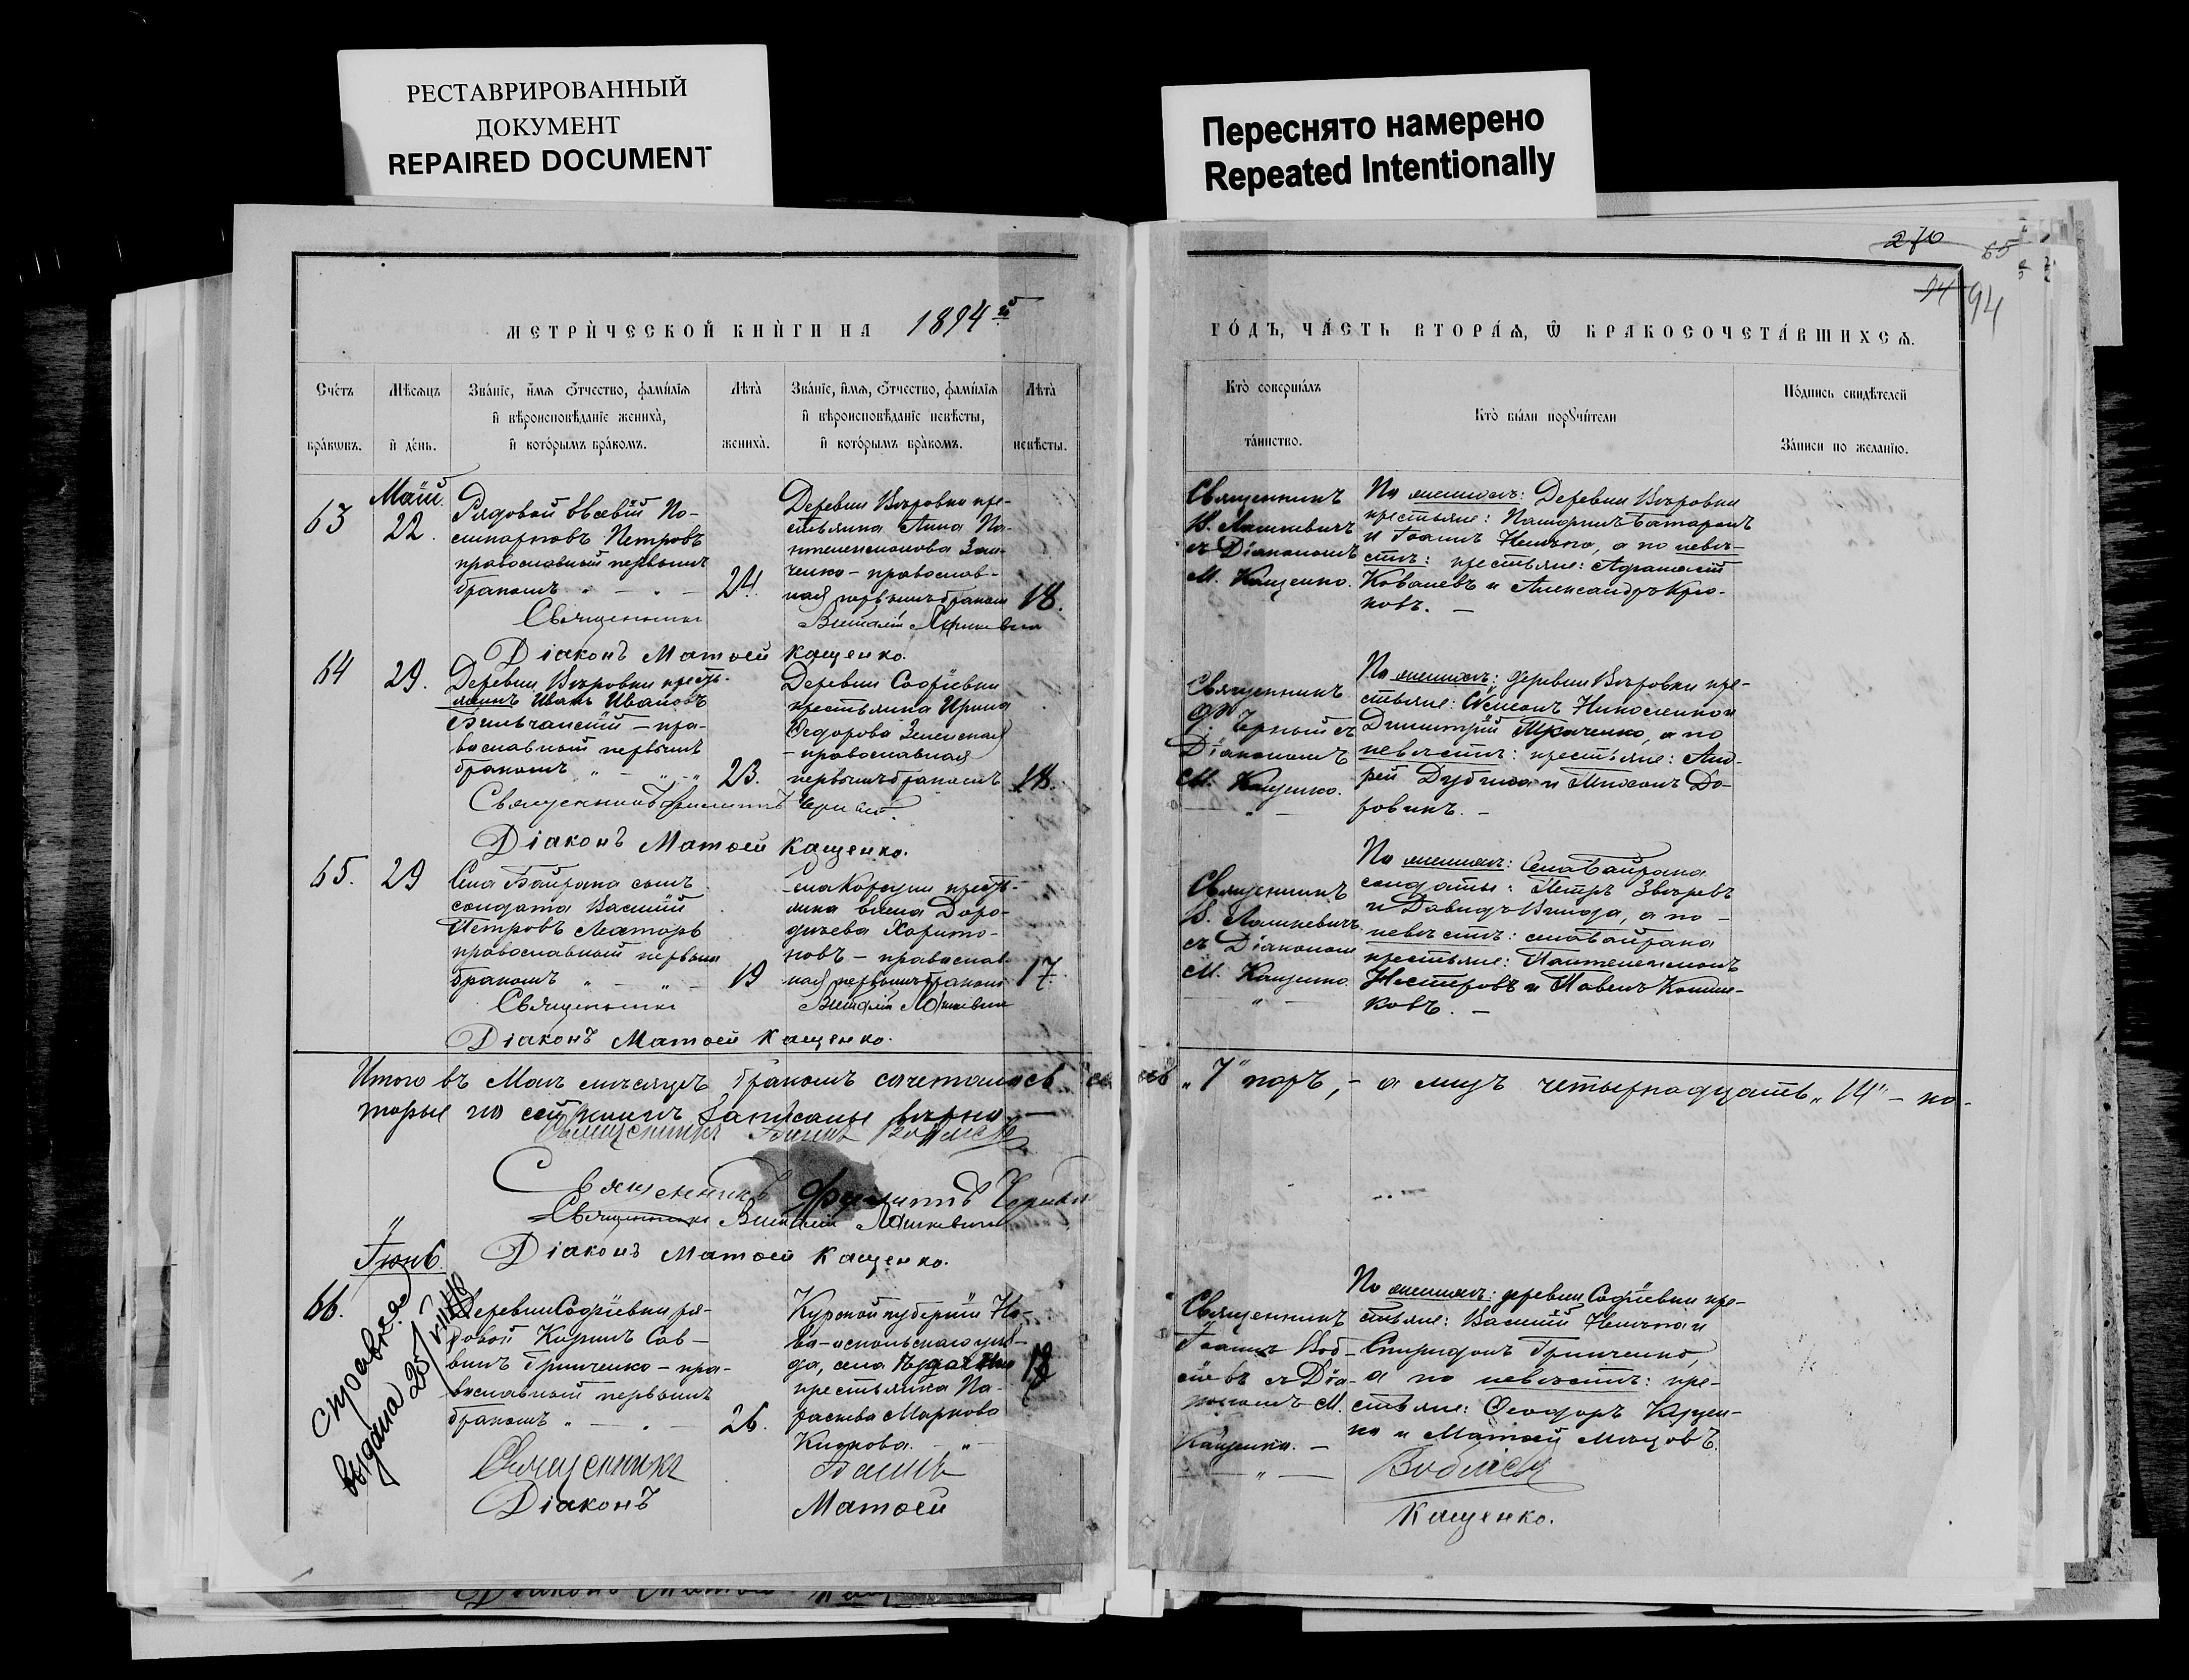 РЕСТАВРИРОВАННЫЙ
ДОКУМЕНТ
REPAIRED DOCUMENT
Переснято намерено
Repeated Intentionally
270
65
94
94
МЕТРИ́ЧЕСКОЙ КНИ́ГИ НА 1894й
ГО́ДЪ, ЧА́СТЬ ВТОРА́Я, Ѿ БРАКОСОЧЕТА́ВШИХСЯ.
Сче́тъ бра́кѡвъ.
Мѣ́сяцъ и де́нь.
Зва́ніе, и́мя, о́тчество, фами́лія
и вѣроисповѣ́даніе жениха̀,
и кото́рымъ бра́комъ.
Лѣта̀
жениха̀.
Зва́ніе, и́мя, о́тчество, фами́лія
и вѣроисповѣ́даніе невѣ́сты,
и кото́рымъ бра́комъ.
Лѣта̀
невѣ́сты.
Кто̀ соверша́лъ
та́инство.
Кто̀ бы́ли поручи́тели
По́дпись свидѣ́телей
За́писи по жела́нію.
63
Май.
22.
Рядовой Евсевій По-
ликарповъ Петровъ
православный первымъ
бракомъ
24.
Деревни Вѣровки кре-
стьянка Анна Па-
нтелеимонова Зай-
ченко - православ-
ная первымъ бракомъ
18.
Священникъ
В. Лашкевичъ
съ Діакономъ
М. Кащенко.
По женихѣ: Деревни Вѣровки
крестьяне:
и Іоаннъ Немчко, а по невѣ-
стѣ: крестьяне: Афанасій
Ковалевъ и Александръ Крю-
ковъ. -
Священникъ Виталій Лашкевичъ
Діаконъ Матѳей Кащенко.
64
29.
Деревни Вѣровки кресть-
янинъ Иванъ Ивановъ
Бѣльчанскій - пра-
вославный первымъ
бракомъ
23.
Деревни Софіевки
крестьянка Ирина
Ѳедорова Зеленская
- православная
первымъ бракомъ
18.
Священникъ
Ф. Черный съ
Діакономъ
М. Кащенко.
По женихѣ: деревни Вѣровки кре-
стьяне: Симеонъ Николенко и
Димитрій Ткаченко, а по
невѣстѣ: крестьяне: Анд-
рей Дубина и До-
ровикъ. -
Священникъ Филиппъ Черный.
Діаконъ Матѳей Кащенко.
65.
29
Села Байрака сынъ
солдата Василій
Петровъ
православный первымъ
бракомъ
19
села Корсуни кресть-
янка Елена Доро-
феева Харито-
новъ - православ-
ная первымъ бракомъ
17.
Священникъ
В. Лашкевичъ
съ Діакономъ
М. Кащенко
По женихѣ: села Байрака
солдаты: Петръ Звѣревъ
и Давидъ а по -
невѣстѣ: села Байрака
крестьяне: Пантелеимонъ
Нестеровъ и Павелъ
ковъ. -
Священникъ Виталій Лашкевичъ
Діаконъ Матѳей Кащенко.
Итого въ Маѣ мѣсяцѣ бракомъ сочеталось „7" паръ, - а лицъ четырнадцать „14" - ко-
торые по сей книгѣ записаны вѣрно. -
Священникъ Іоаннъ
Священникъ Филиппъ Черный
Священникъ Виталій Лашкевичъ
Діаконъ Матѳей Кащенко.
Іюнь
66.
справка
выдана 25/
Деревни Софіевки ря-
довой Кириллъ Сав-
винъ Гринченко - пра-
вославный первымъ
бракомъ
26.
Курской губерніи Но-
во-оскольскаго уѣз-
да, села
крестьянка Па-
раскева Маркова
18
Священникъ
Іоаннъ
съ Діа-
кономъ М.
Кащенко. -
По женихѣ: деревни Софіевки кре-
стьяне: Василій Немчко и
Спиридонъ Гринченко,
а по невѣстѣ: кре-
стьяне: Ѳеодоръ
и Матѳей
Священникъ Іоаннъ
Діаконъ Матѳей Кащенко.